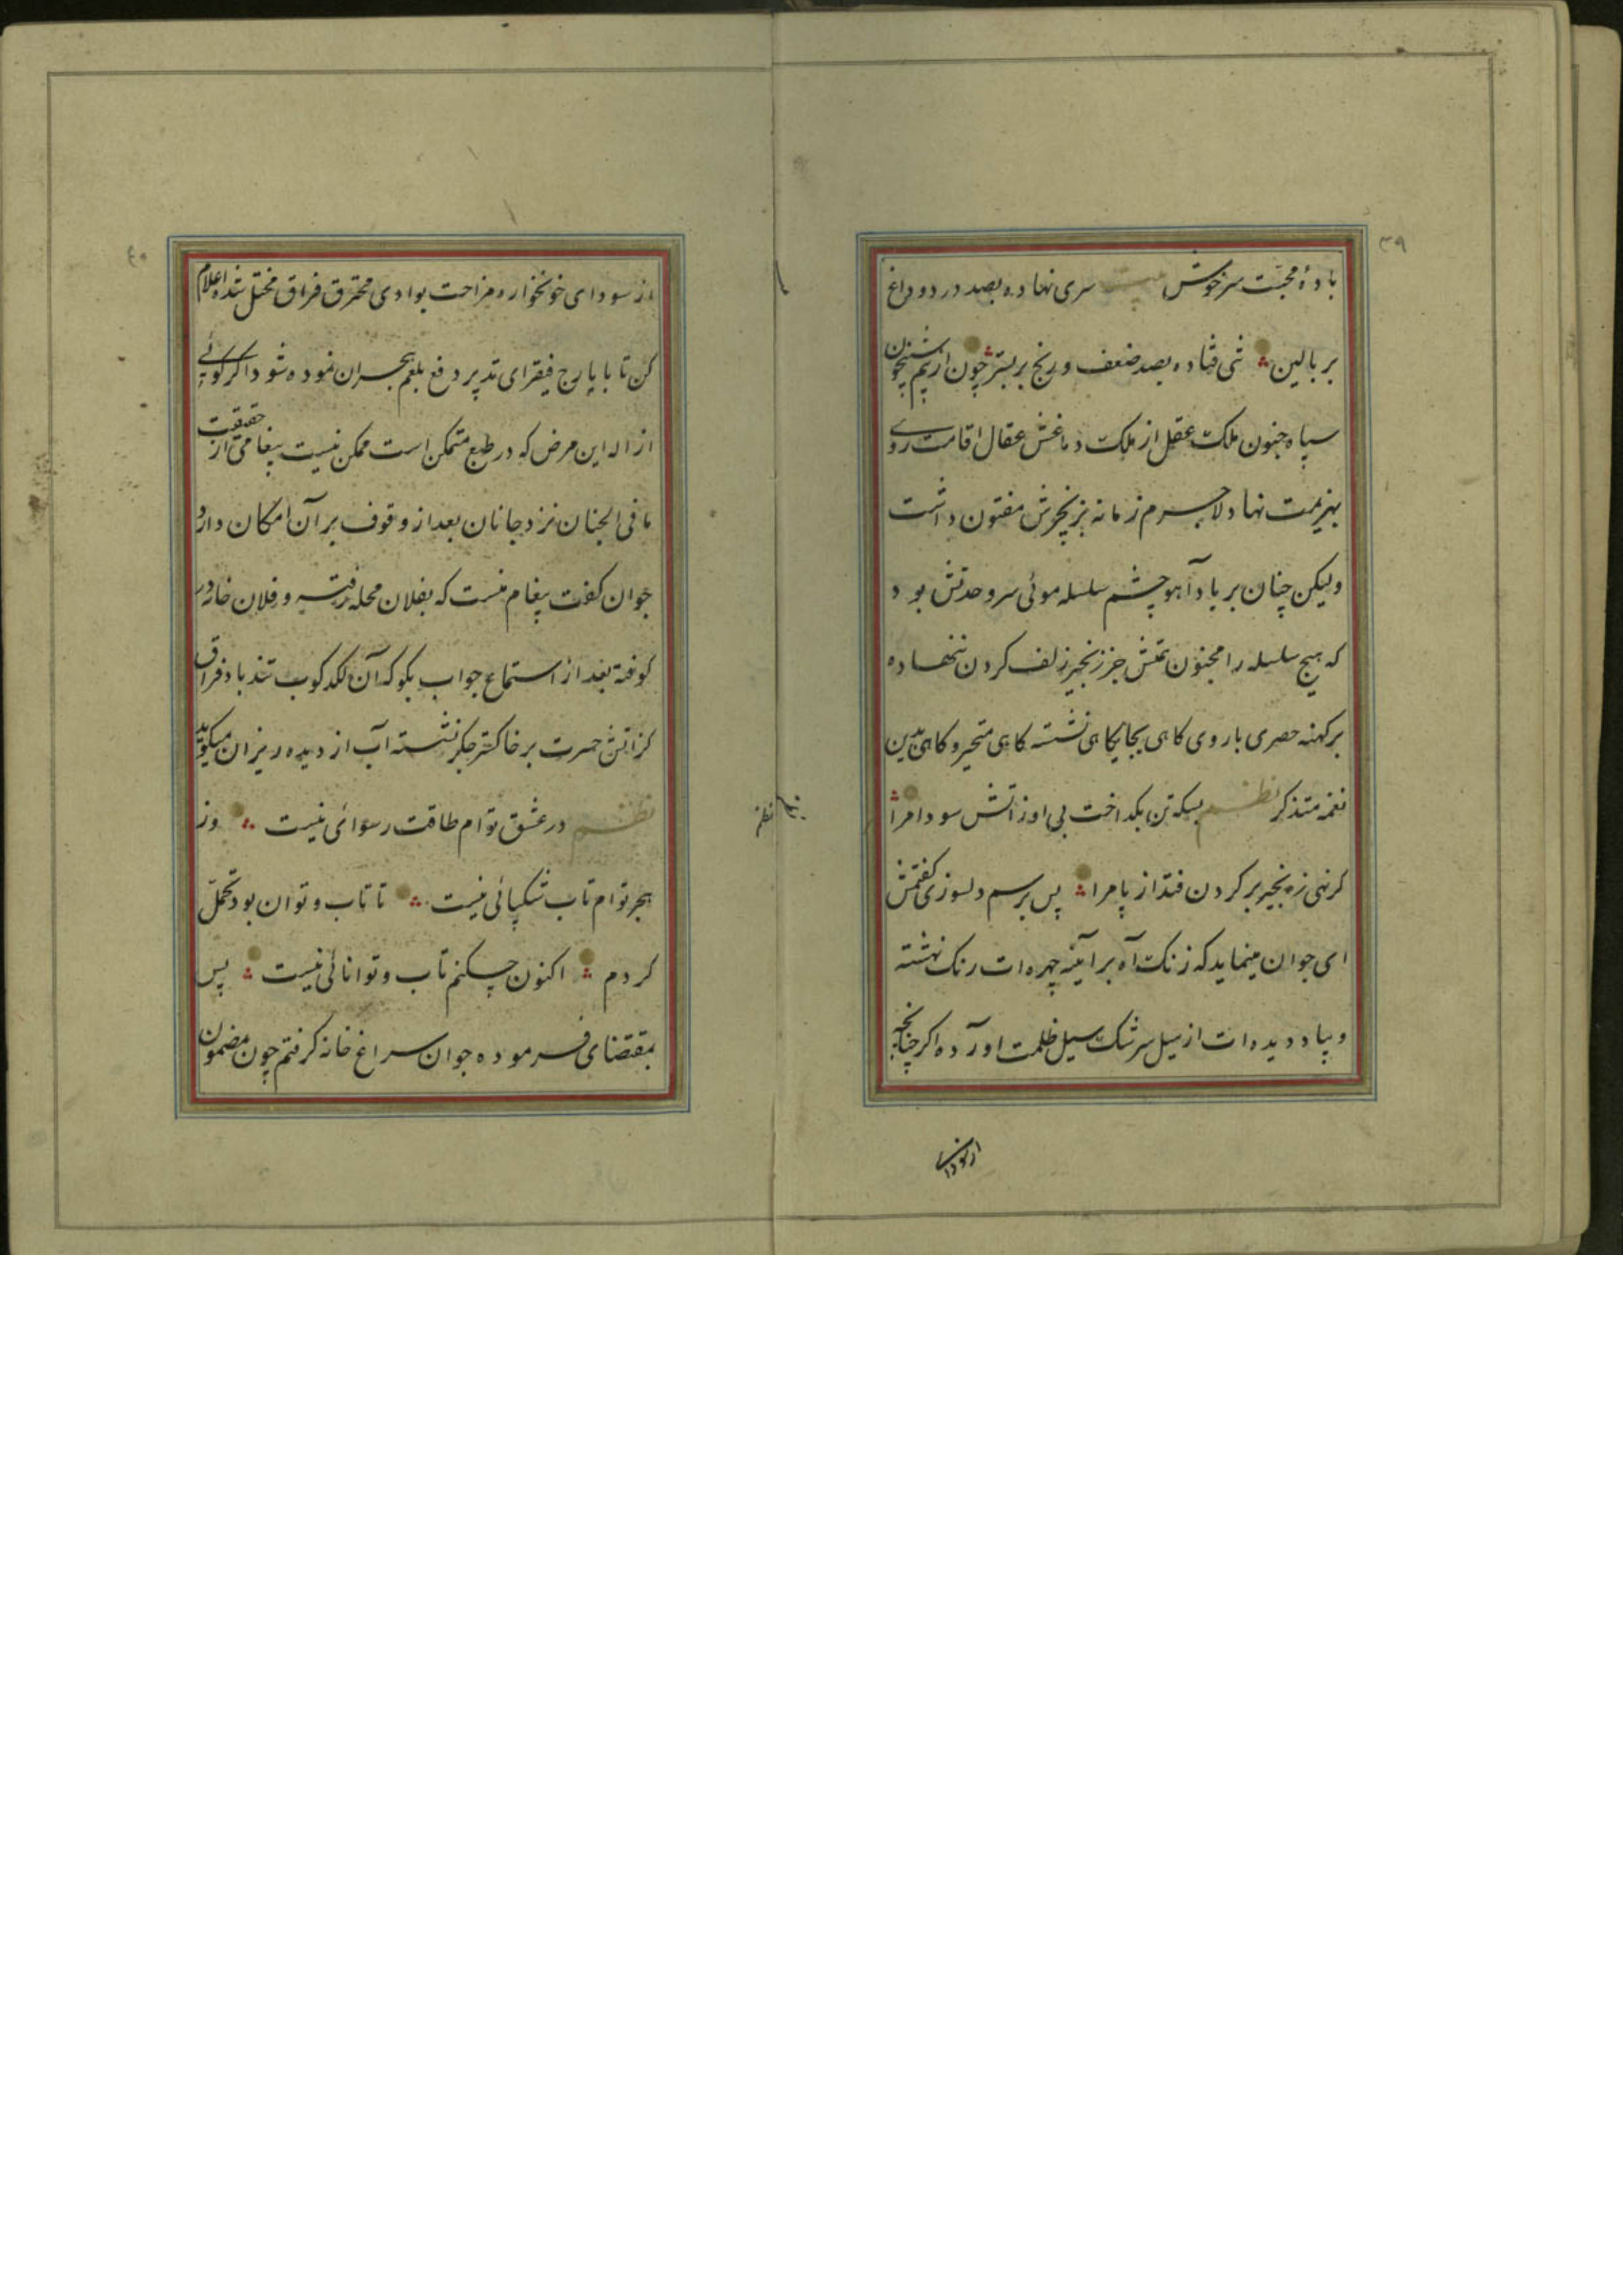 ۳۹
بادهٔ محبّت سرخوش بیت سری نهاده بصد درد و داغ
بر بالین تنی فتاده بصد ضعف و رنج بر بستر چون از بیم شبیخون
سپاه جنون ملک عقل از ملک دماغش عقال اقامت روی
بهزیمت نهاد لاجرم زمانه بزنجیرش مفتون داشت
ولیکن چنان بر یاد آهو چشم سلسله موئی سر وحدتش بود
که هیچ سلسله را مجنون تنش جز زنجیر زلف کردن ننهاده
بر کهنه حصری با روی کاهی بجایکاهی نشسته کاهی متحیر و کاهی بدین
نغمه متذکر نظم بسکه تن بکداخت بی او ز آتش سودا مرا
کر نهی زنجیر بر کردن فتد از پا مرا پس برسم دلسوزی کفتمش
ای جوان مینماید که زنک آه بر آینه چهره‌ات رنک نهشته
و بیاد دیده‌ات از سیل سرشک سیل ظلمت آورده اکر چنانچه
از سودای
نظم
۴۰
از سودای خونخواره مزاجت بوادی محترق فراق مختل شده اعلام
کن تا بایارج فیقرای تدبیر دفع بلغم هجران نموده شود و اکر کوئی
ازاله این مرض که در طبع متمکن است ممکن نیست پیغامی از حقیقت
ما فی الجنان نزد جانان بعد از وقوف بر آن امکان دارد
جوان کفت پیغام منست که بفلان محله رفته و فلان خانه در
کوفته بعد از استماع جواب بکو که آن لکدکوب تندباد فراق
کز آتش حسرت بر خاکستر جکر نشسته آب از دیده ریزان میکوید
نظم در عشق توام طاقت رسوائی نیست وز
هجر توام تاب شکیبائی نیست تا تاب و توان بود تحمّل
کردم اکنون چکنم تاب و توانائی نیست پس
بمقتضای فرموده جوان سراغ خانه کرفتم چون مضمون